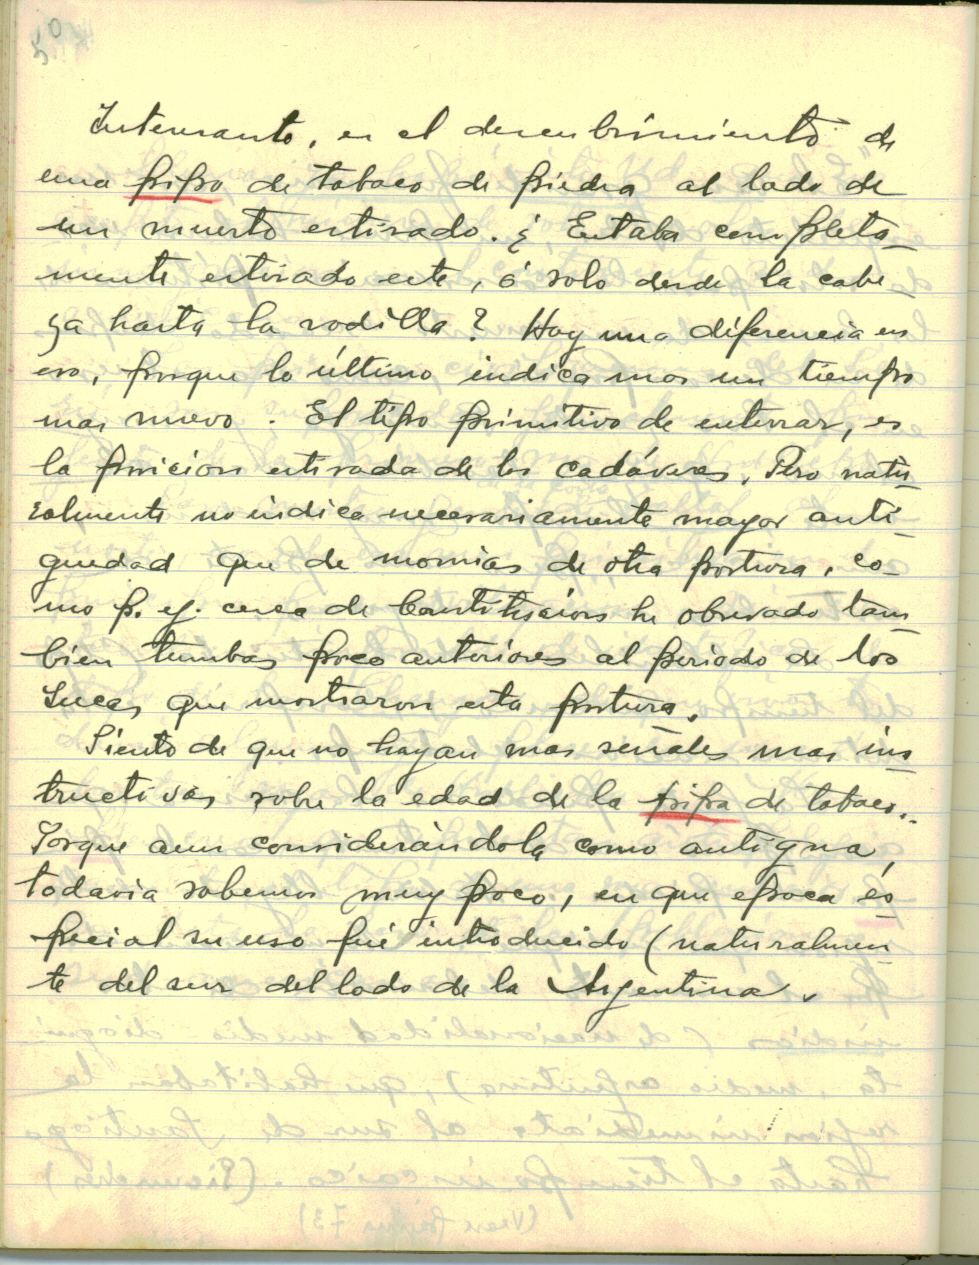 50
Interesante, es el descubrimiento de
una pipa de tabaco de piedra al lado de
un muerto estirado. ¿ Estaba completa-
mente estirado este, ó solo desde la cabe
za hasta la rodilla? Hay una diferencia en
eso, porque lo último indica mas un tiempo
mas nuevo. El tipo primitivo de enterrar, es
la posicion estirada de los cadáveres. Pero natu-
ralmente no indica necesariamente mayor anti-
guedad que de momias de otra postura, co-
mo p. ej. cerca de Constitucion he obsevado tam-
bien tumbas poco anteriores al periodo de los
Incas que mostraron esta postura.
Siento de que no hayan mas señales mas ins-
tructivas sobre la edad de la pipa de tabaco..
Porque aun considerándola como antigua,
todavia sabemos muy poco, en que epoca es-
pecial su uso fué introducido (naturalmen-
te del sur del lado de la Argentina.